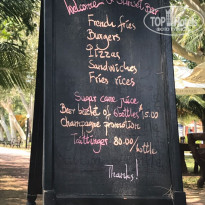 Welcome to Sunset Bar
French fries
Burgers
Pizzas
Sandwiches
Fries rices
Sugar cane juice
Beer basket of 6 bottles 15.00
Champagne promotion
Taittinger 80.00/bottle
Thanks!
TopHotels